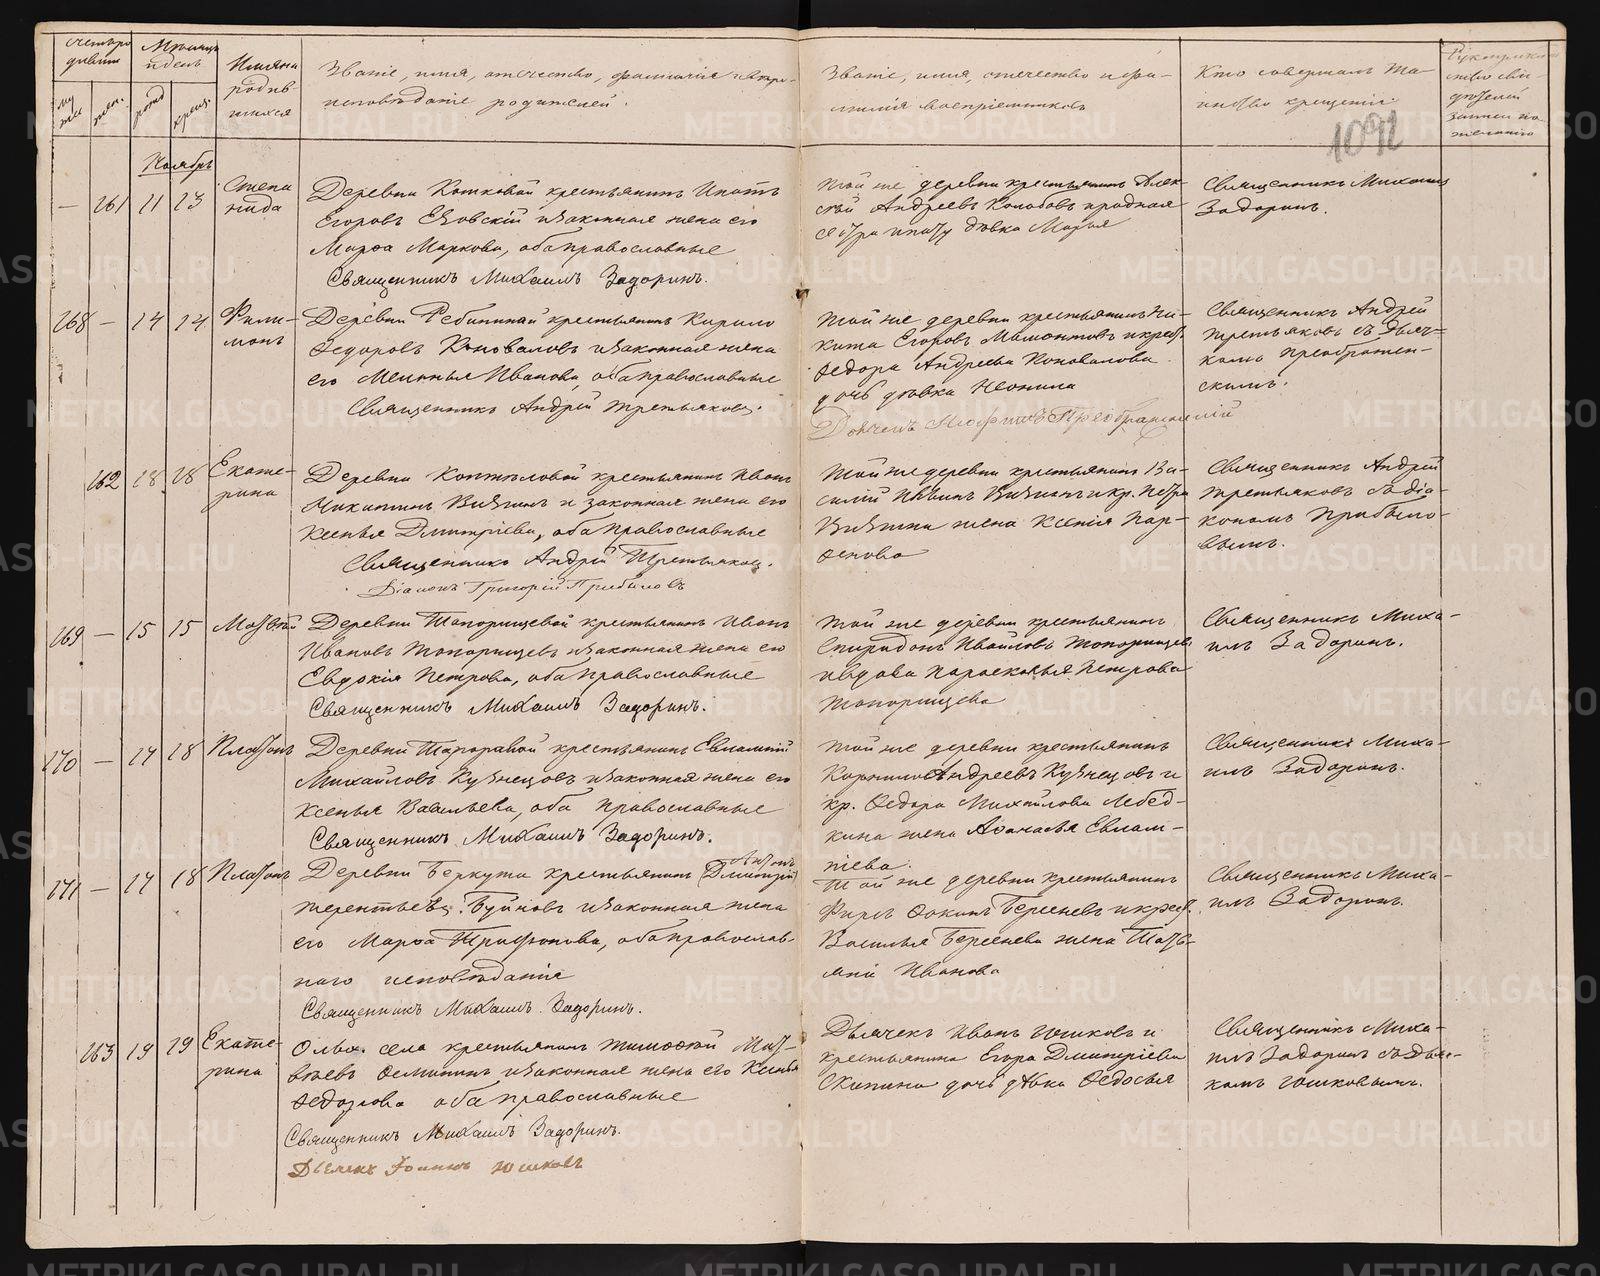 Счетъ родивши
Мѣсяцъ и день
Имяна родив-
шихся
Званіе, имя, отечество, фамилія и вѣро-
исповѣданіе родителей.
Званіе, имя, отечество и фа-
милія воспріемниковъ
Кто совершалъ та-
инство крещенія.
1092
Ноябрь
— 161 11 13 Степа
нида
Деревни Кошковой крестьянинъ Ипатъ
Егоровъ Езовскій и законная жена его
Марѳа Маркова, оба православные
Священникъ Михаилъ Задоринъ.
той же деревни крестьянинъ Алек-
сѣй Андреевъ Колобовъ и родная
сестра Ипату дѣвка Марья
Священникъ Михаилъ
Задоринъ.
168 — 14 14 Фили-
монъ
Деревни Ребининой крестьянинъ Кирило
Ѳедоровъ Коноваловъ и законная жена
его Меланья Иванова, оба православные
Священникъ Андрей Третьяковъ.
той же деревни крестьянинъ Ни-
кита Егоровъ Мамонтовъ и крест.
Ѳедора Андреева Коновалова
дочь дѣвка Неонила
Дьячекъ Преображенскій
Священникъ Андрей
Третьяковъ съ дьяч-
комъ Преображен-
скимъ.
162 18 18 Екате-
рина
Деревни Коптяловой крестьянинъ Иванъ
Никитинъ Вязгинъ и законная жена его
Ксенья Дмитріева, оба православные
Священникъ Андрей Третьяковъ.
Діаконъ Григорій Прибыловъ
Той же деревни крестьянинъ Ва-
силій Ивинъ Вязгинъ и кр. Петра
Вязгина жена Ксенія Пар-
ѳенова
Священникъ Андрей
Третьяковъ съ діа-
кономъ Прибыло-
вымъ.
169 — 15 15 Матвѣй
Деревни Топорищевой крестьянинъ Иванъ
Ивановъ Топорищевъ и законная жена его
Евдокія Петрова, оба православные
Священникъ Михаилъ Задоринъ.
той же деревни крестьянинъ
Спиридонъ Ивановъ Топорищевъ
и вдова Параскевья Петрова
Топорищева
Священникъ Миха-
илъ Задоринъ.
170 — 17 18 Платонъ
Деревни крестьянинъ Евлампій
Михайловъ Кузнецовъ и законная жена его
Ксенья Васильева, оба православные
Священникъ Михаилъ Задоринъ.
той же деревни крестьянинъ
Корнило Андреевъ Кузнецовъ и
кр. Ѳедора Михайлова Лебед-
кина жена Аѳанасья Евлам-
піева.
Священникъ Миха-
илъ Задоринъ.
171 — 17 18 Платонъ
Антонъ
Деревни Беркута крестьянинъ (Дмитрій)
Терентьевъ Буйновъ и законная жена
его Марѳа Трифонова, оба православ-
наго исповѣданія
Священникъ Михаилъ Задоринъ.
Той же деревни крестьянинъ
Фирсъ Ѳокинъ Берсеневъ и крест.
Василья Берсенева жена Татья-
Иванова
Священникъ Миха-
илъ Задоринъ.
163 19 19 Екате-
рина
Ольх. села крестьянинъ Тимоѳей Мат-
вѣевъ и законная жена его Ксенья
Ѳедорова оба православные
Священникъ Михаилъ Задоринъ.
Дьячекъ Іоаннъ Юшковъ
Дьячекъ Иванъ Юшковъ и
крестьянина Егора Дмитріева
Скипина дочь дѣвка Ѳедосья
Священникъ Миха-
илъ Задоринъ съ дьяч-
комъ Юшковымъ.
METRIKI.GASO-URAL.RU